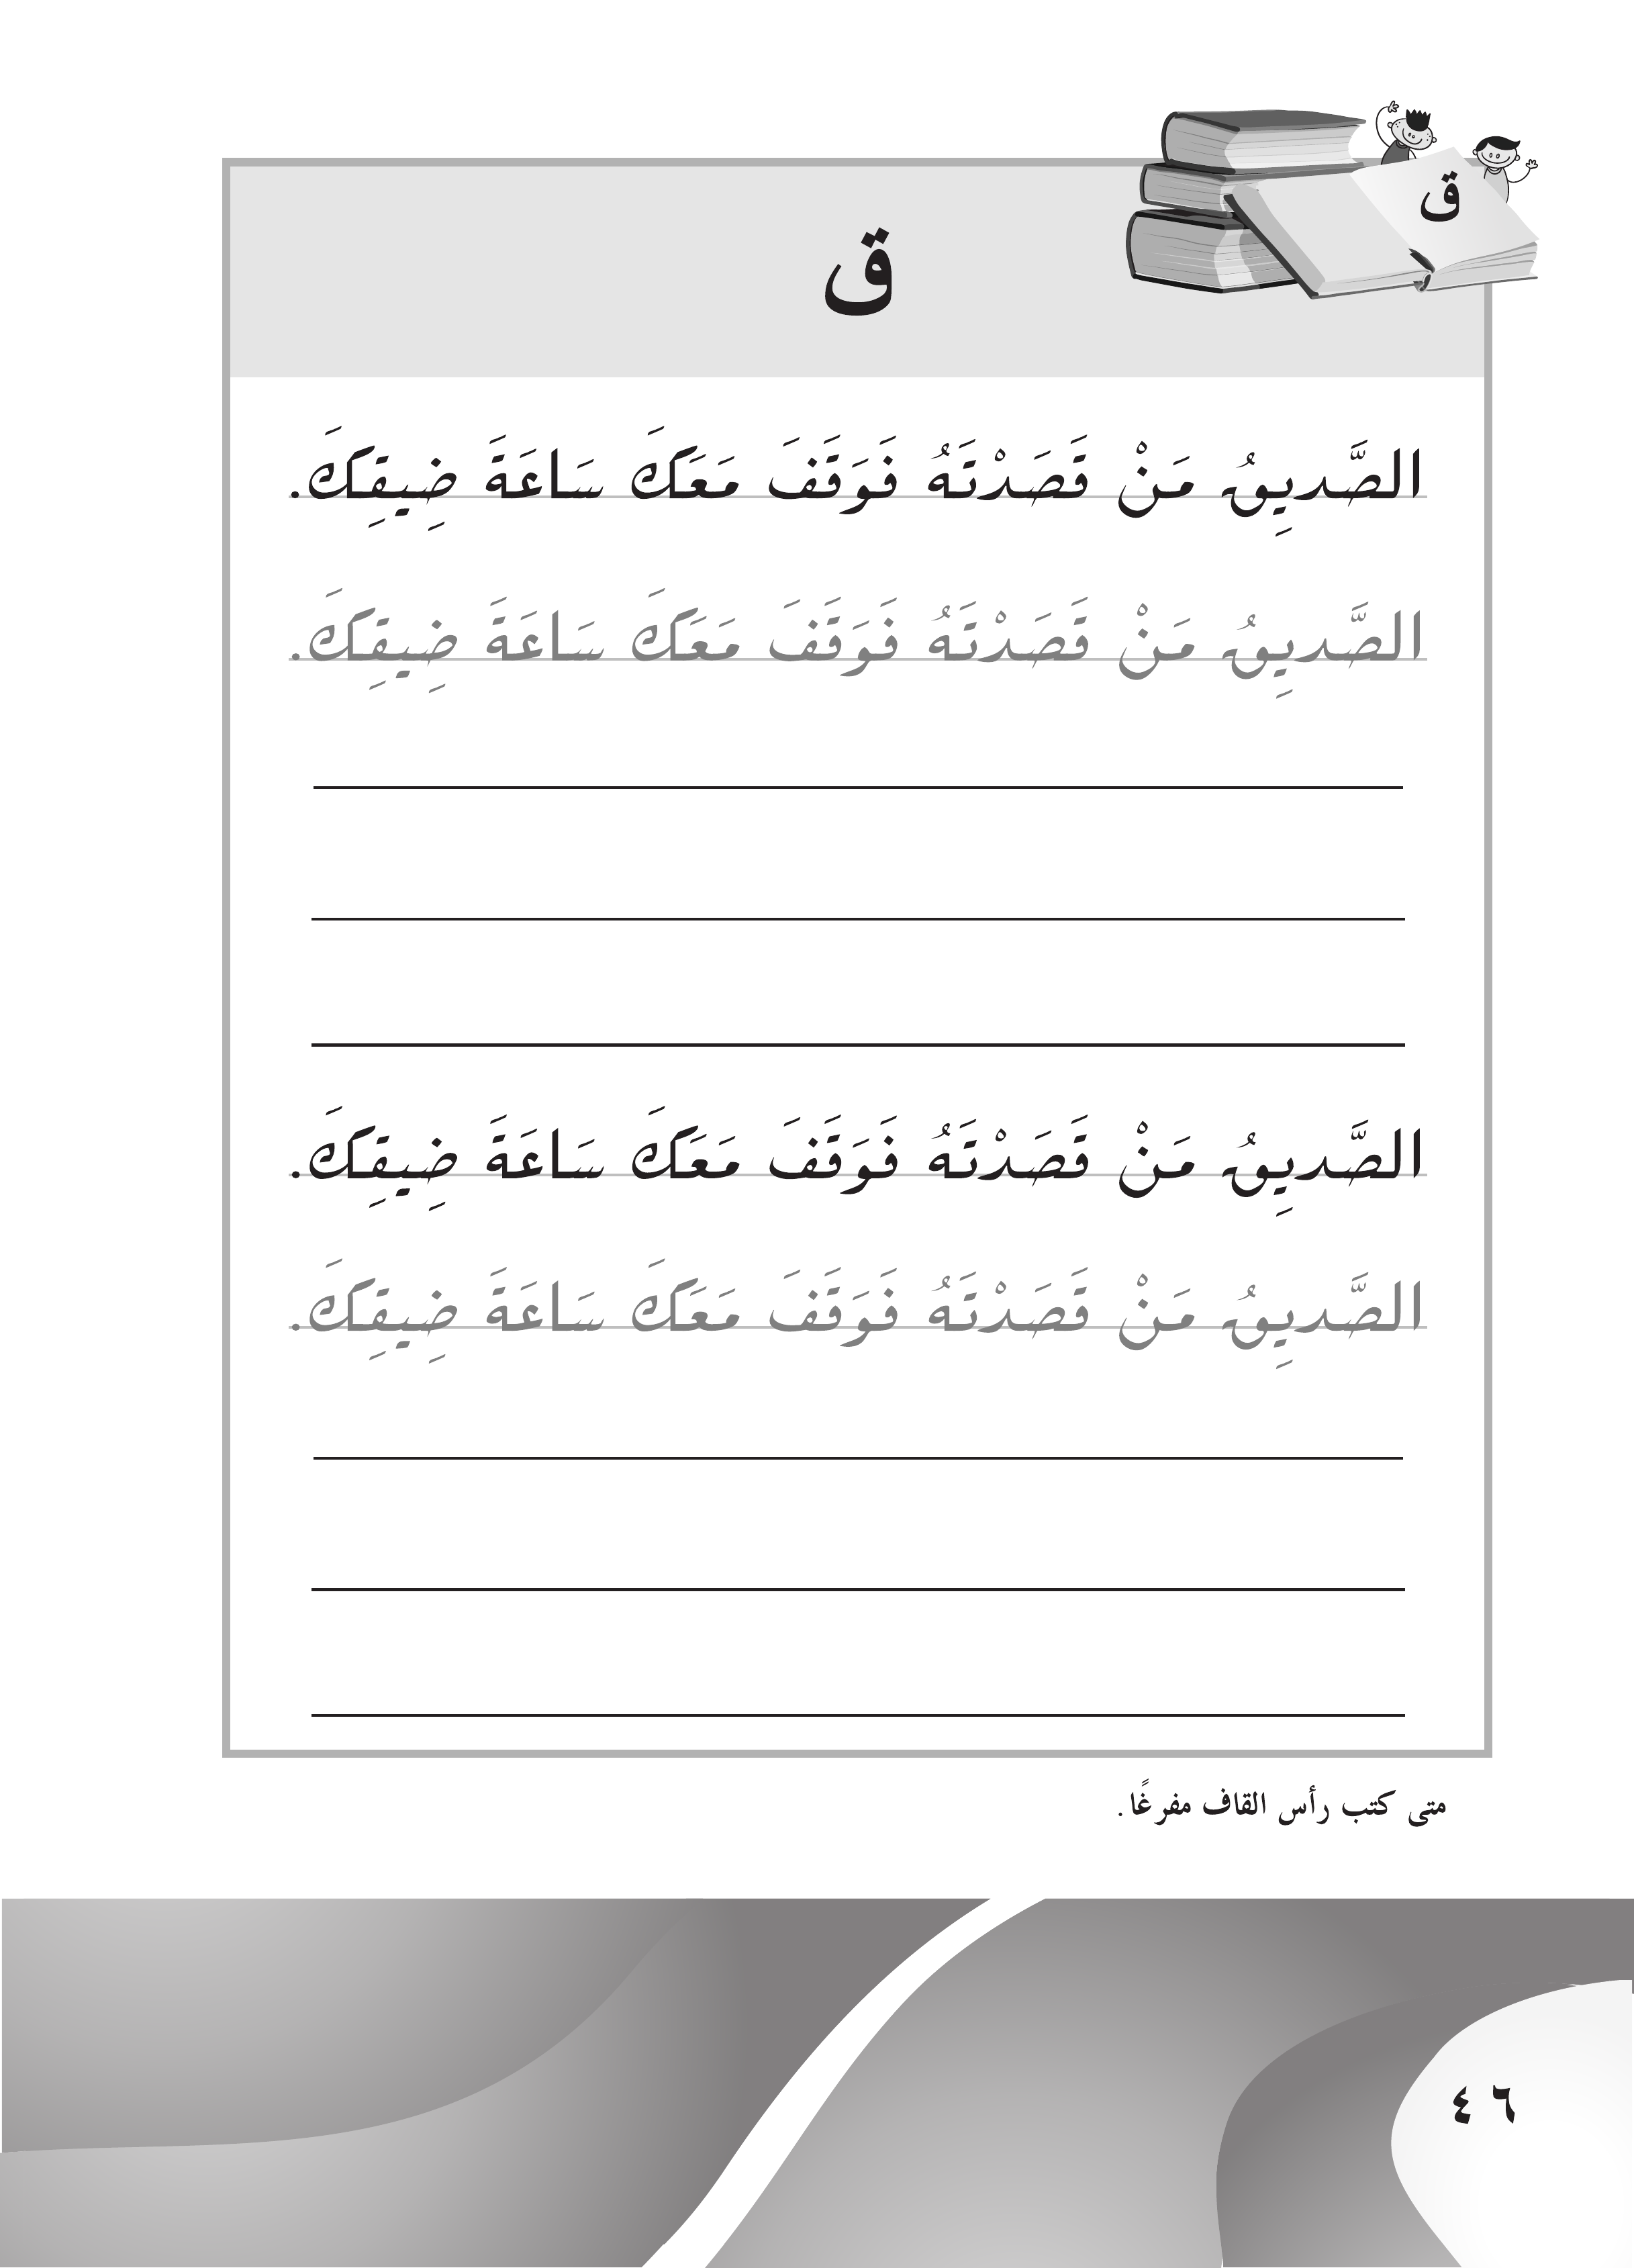 ق
ق
الصَّديِقُ مَنْ قَصَدْتَهُ فَوَقَفَ مَعَكَ سَاعَةَ ضِيقِكَ.
الصَّديِقُ مَنْ قَصَدْتَهُ فَوَقَفَ مَعَكَ سَاعَةَ ضِيقِكَ.
الصَّديِقُ مَنْ قَصَدْتَهُ فَوَقَفَ مَعَكَ سَاعَةَ ضِيقِكَ.
الصَّديِقُ مَنْ قَصَدْتَهُ فَوَقَفَ مَعَكَ سَاعَةَ ضِيقِكَ.
متى كتب رأس القاف مفرغًا.
٤٦